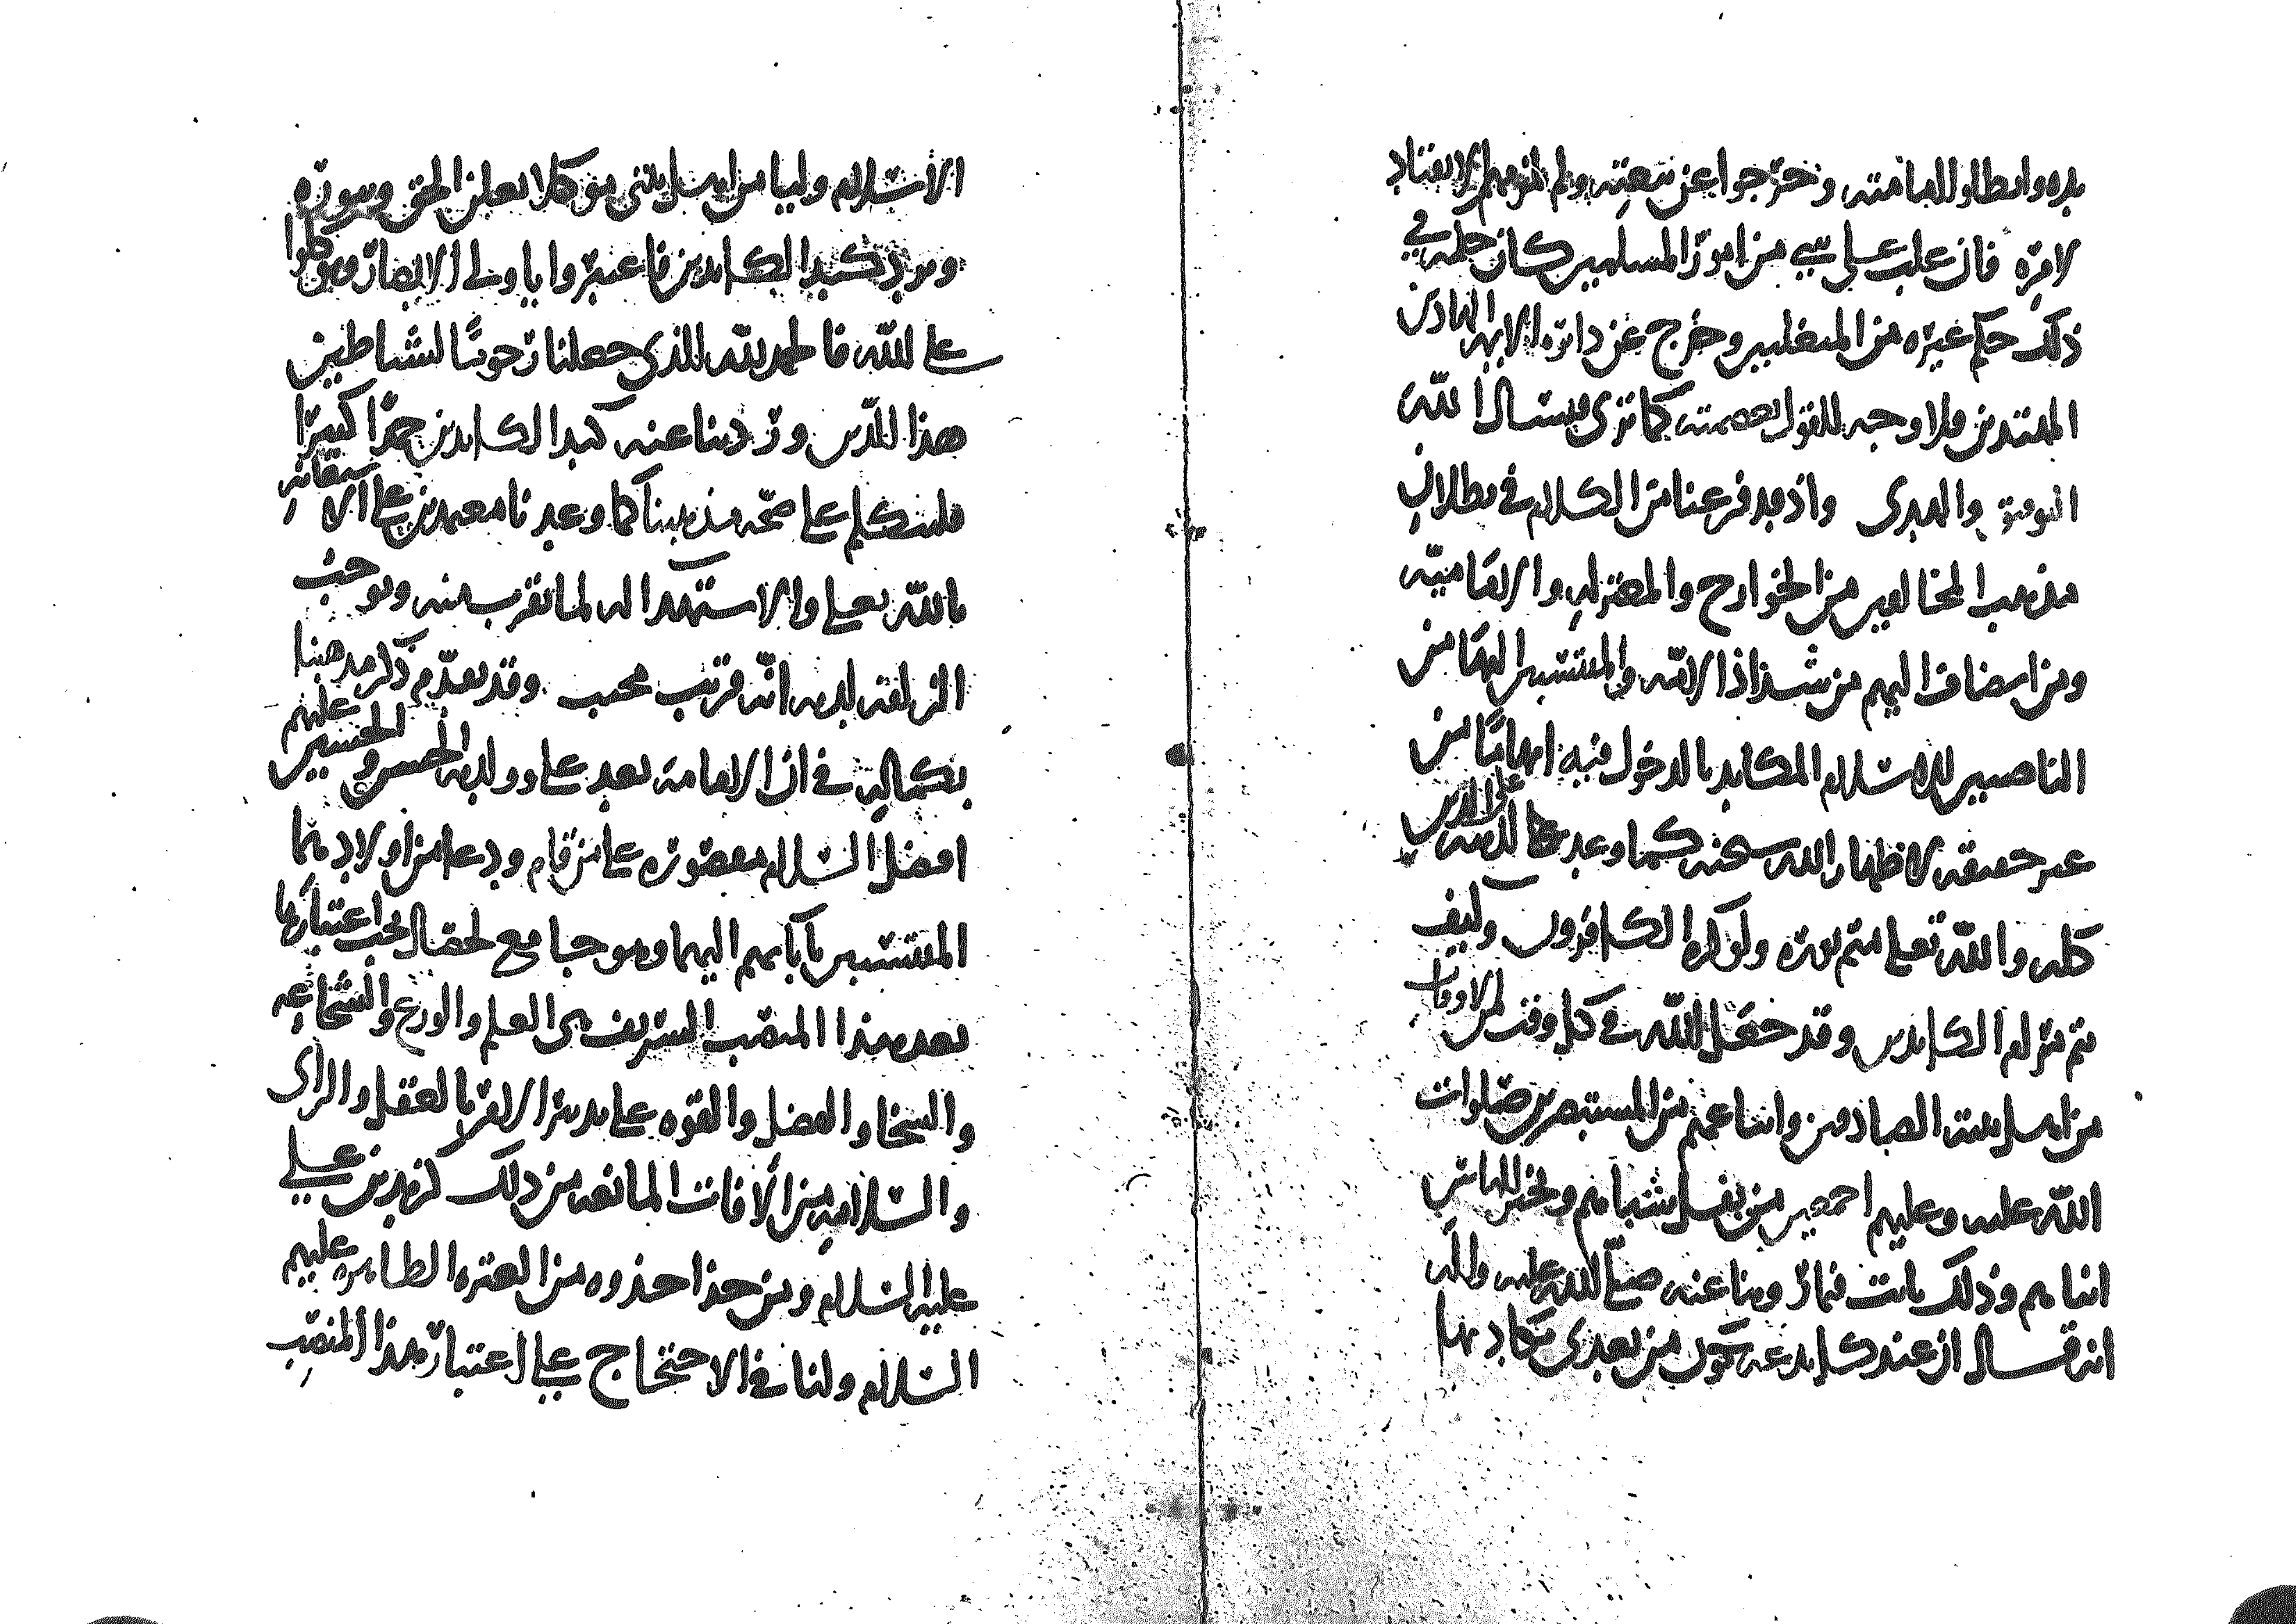 يده وابطلوا امامته وخرجوا عن بيعته ولم يلزمهم الانقياد
لامره فان غلب على شي من امور المسلمين كان حكمه في
ذلك حكم غيره من المتغلبين وخرج عن دائره الايمه الهادين
المهتدين فلا وجه للقول بعصمته كما ترى فنسال الله
التوفيق والهدى واذ قد فرغنا من الكلام في بطلان
مذهب المخالفين من الخوارج والمعتزله والاماميه
ومن انضاف اليهم من شذاذ الامه والمنتسبين اليها من
الناصبين للاسلام المكايد بالدخول فيه ايهاما من
غير حقيقه لاظهار الله سبحنه كما وعد على الدين
كله والله تعلى متم نوره ولوكره الكافرون وكيف
يتم مرام الكايدين وقد جعل الله في كل وقت من الاوقات
من اهل بيت الصادقين واتباعهم من المستبصرين صلوات
الله عليه وعليهم اجمعين من يفل شباهم
اتباهم وذلك ثابت فيما روينا عنه صلى الله عليه واله
انه قال ان عند كل بدعه تكون من بعدي يكاد بها
الاسلام وليا من اهل بيتي موكلا يعلن الحق وينوره
ويرد كيد الكايدين فاعتبروا ياولي الابصار وتوكلوا
على الله فالحمد لله الذي جعلنا رجوما لشياطين
هذا الدين ورد بنا عنه كيد الكايدين حمدا كثيرا
فلنتكلم على صحه مذهبنا كما وعدنا معتمدين على الاستقانه
بالله تعلى والاستهدا له لما يقرب منه ويوجب
الزلفه لديه انه قريب مجيب وقد تقدم ذكر مذهبنا
بكماله في ان الامامه بعد علي وولديه الحسن والحسين عليهم
افضل السلام مقصوره على من قام ودعا من اولادهما
المنتسبين بابايهم اليهما وهو جامع لخصال يجب اعتبارها
بعد هذا المنصب الشريف هي العلم والورع والشجاعه
والسخا والفضل والقوه على تدبير الامر بالعقل والراى
والسلامه من الافات المانعه من ذلك كزيد بن علي
عليه السلام ومن حذا حذوه من العتره الطاهره عليهم
السلام ولنا في الاحتجاج على اعتبار هذا المنصب